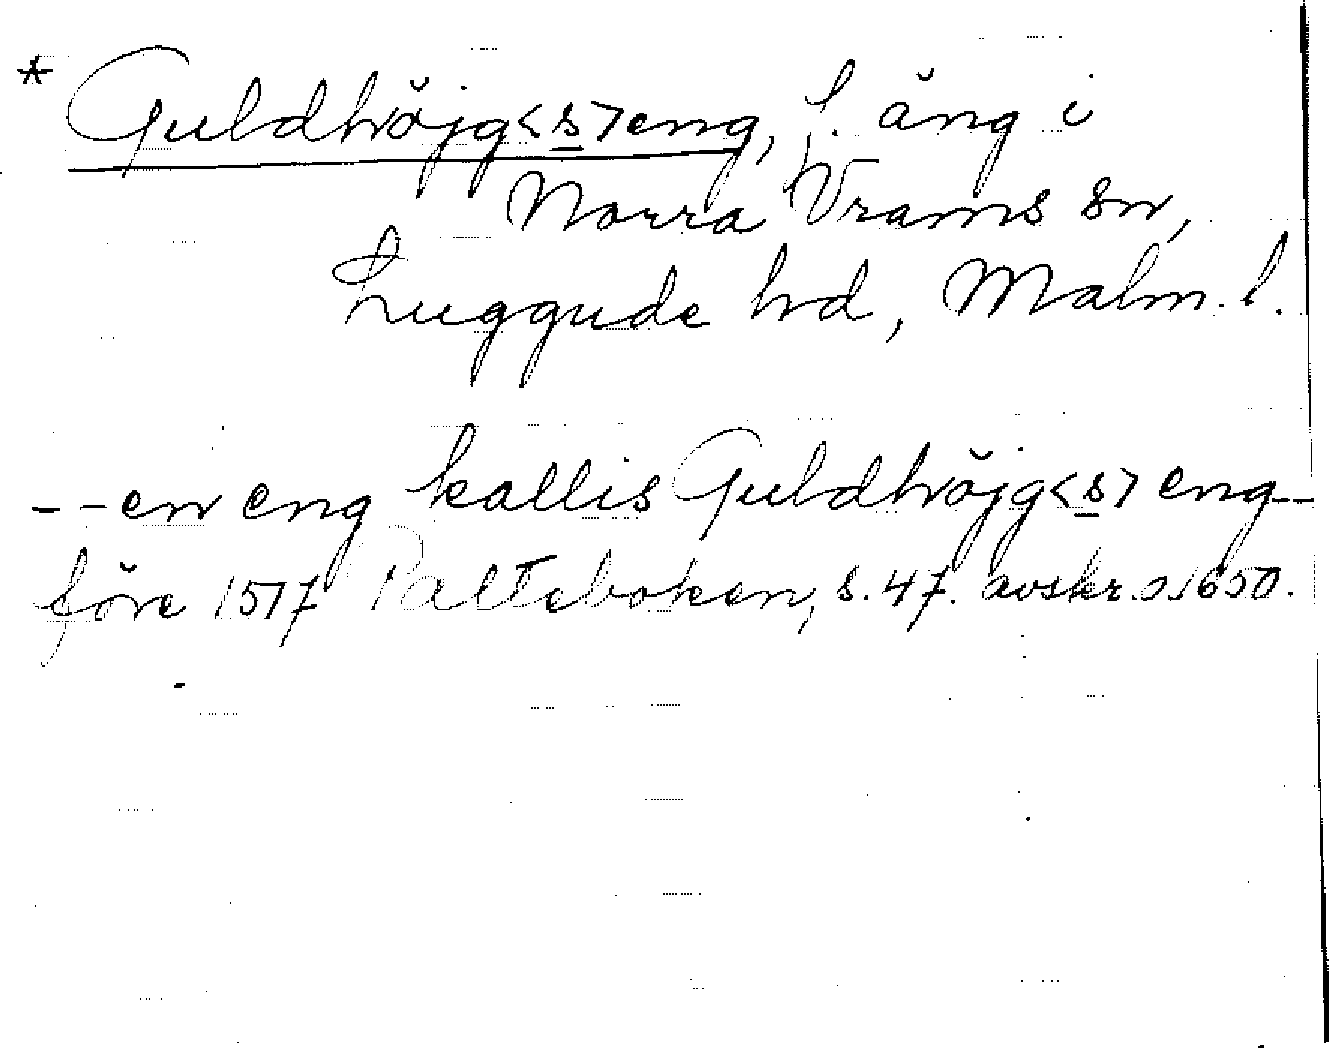 * Guldhöjg<s>eng, f. äng i
Norra Vrams sn,
Luggude hd, Malm. l.
-- en eng kallis Guldhöjg<s>eng --
före 1517 Palteboken, s. 47. avskr. o. 1650.